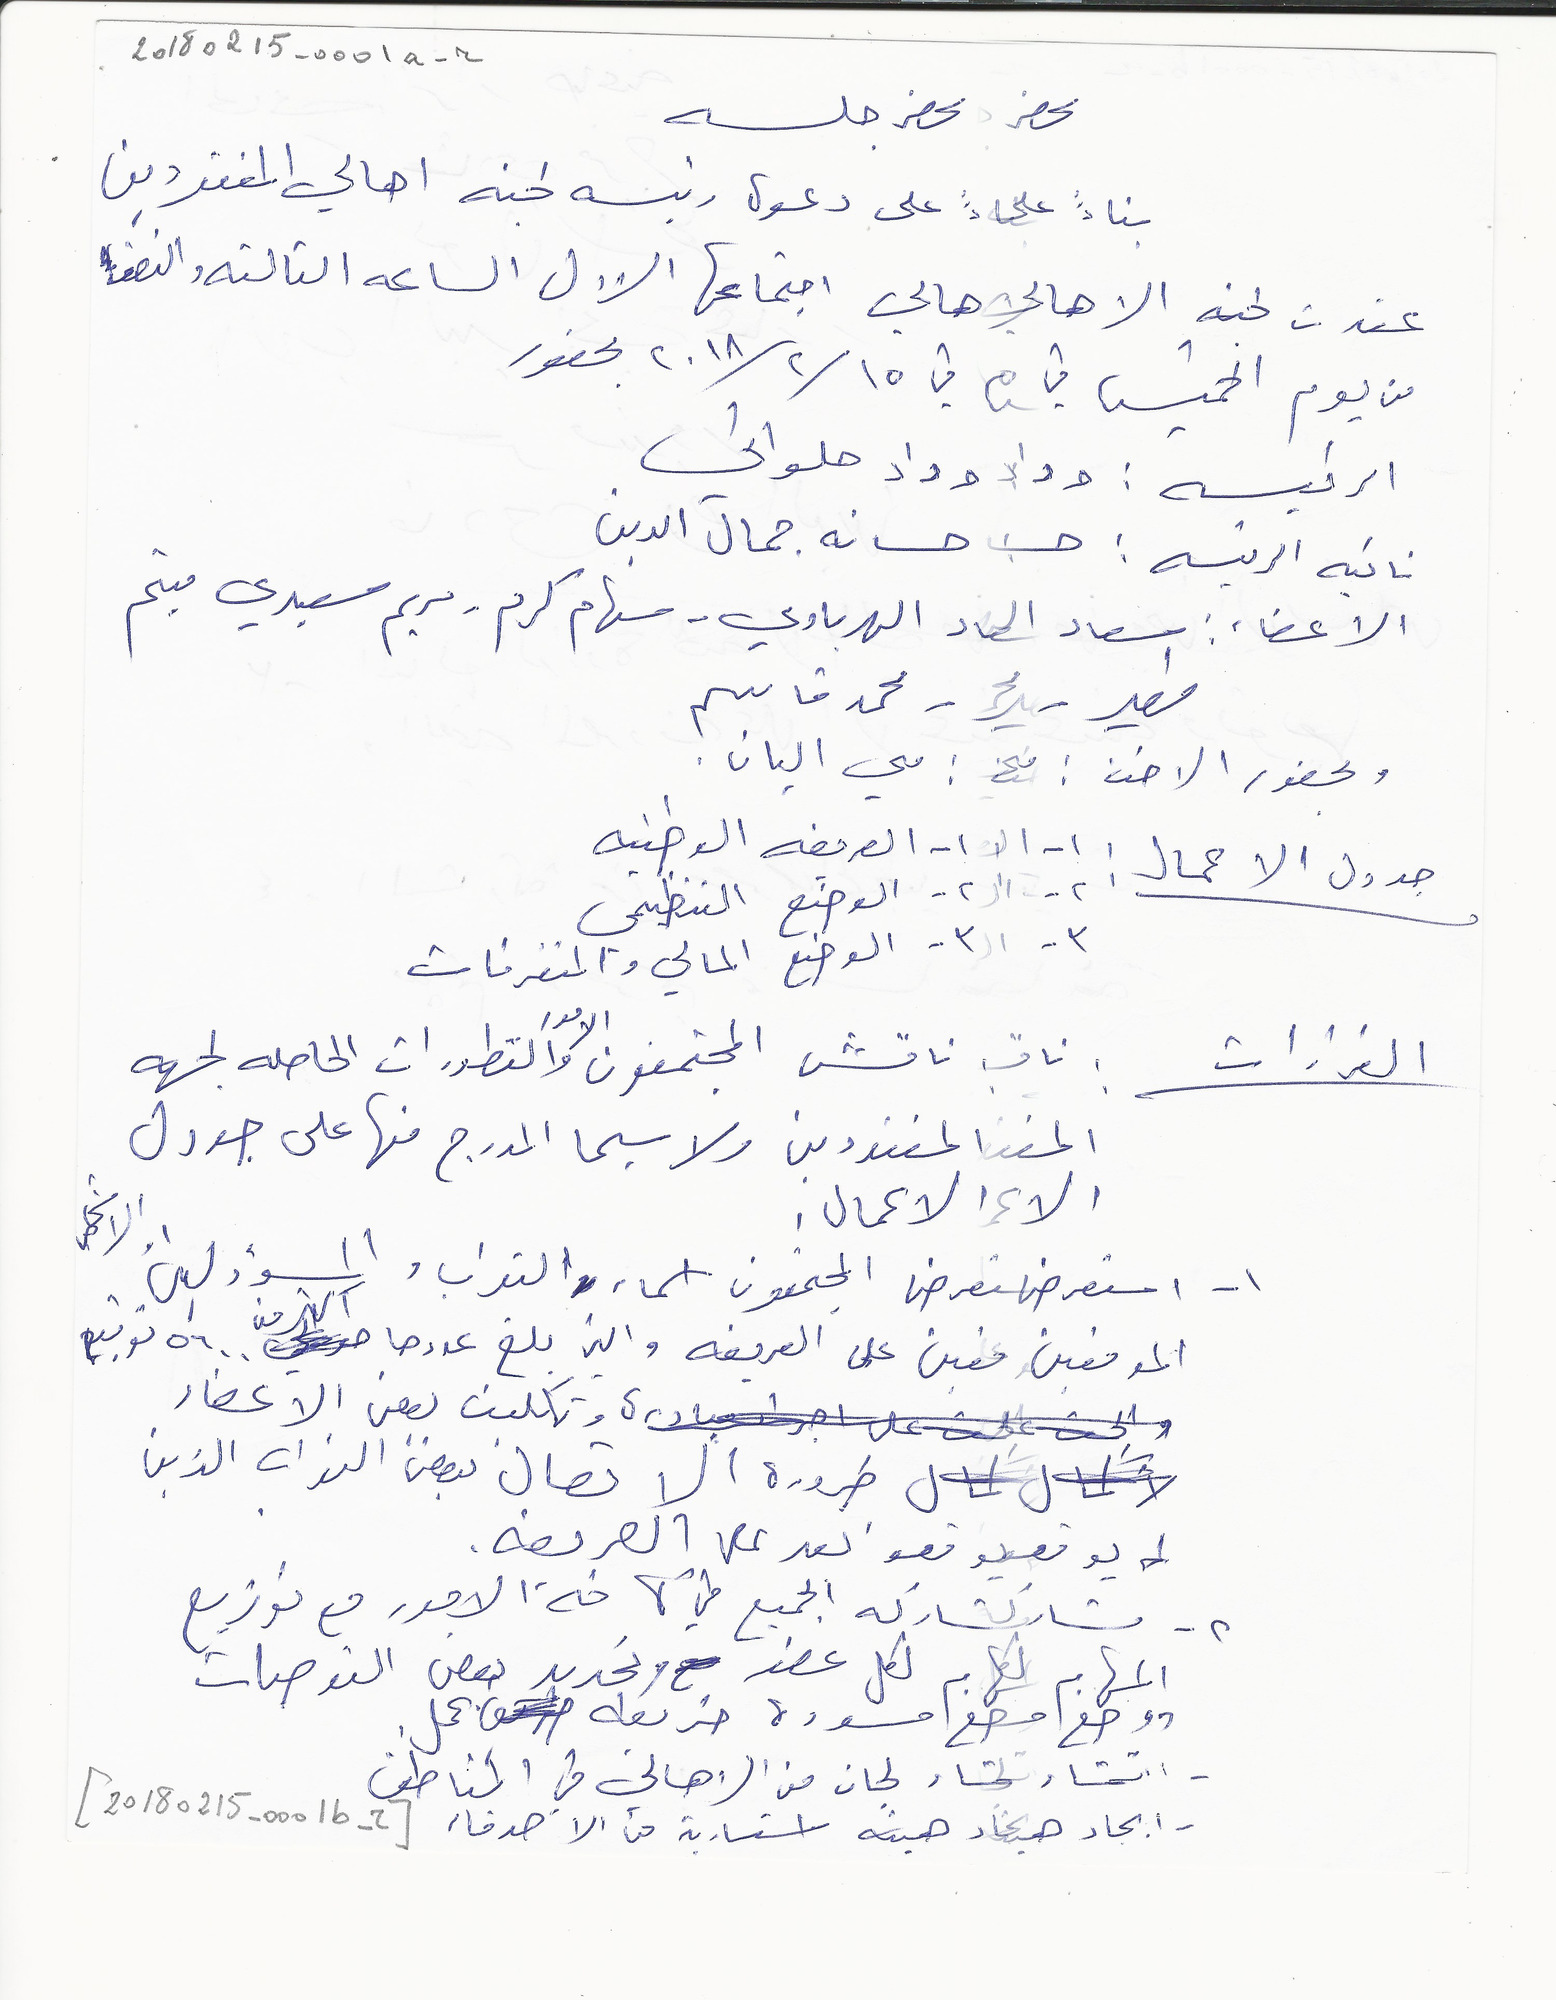 20180215_0001a_r
محضر محضر جلسه
بناءً علىاءً على دعوة رئيسه لجنه اهالي المفقودين
عقدت لجنه الاهالي هالي اجتماعها الاول الساعه الثالثه والنصف
من يوم الخميس في في ١٥/٢/٢٠١٨ بحضور
الرئيسه : وداد وداد حلواني
نائبه الرئيسه : حسانه جمال الدين
الاعضاء : سعاد الهرباوي - سهام كرم - مريم سعيدي ميتم
- محمد قاسم
وبحضور الاخت : مي البان .
جدول الاعمال : ١- ١- العريضه الوطنيه
٢- ٢- الوضع التنظيمي
٣- ٣- الوضع المالي والمتفرقات
القرارات : ناقش المجتمعون الامور والتطورات الحاصله لجهه
المفقودين ولا سيما المدرج منها على جدول
الاعمال :
١- استعرض المجتمعون اسماء النواب و المسؤولين
الموقعين على العريضه والتي بلغ عددها اكثر من ٥٦٠٠ توقيع
وتكليف بعض الاعضاء
ضرورة الاتصال ببعض النواب الذين
لم يوقعوا بعد على العريضه .
٢- مشاركه الجميع في كافة الامور مع توزيع
المهام لكل عضو وتحديد بعض التوصيات
ووضع مسودة خريطه عمل .
- انشاء لجان من الاهالي في المناطق
- ايجاد هيئه استشارية من الاصدقاء
[20180215_0001b_r]